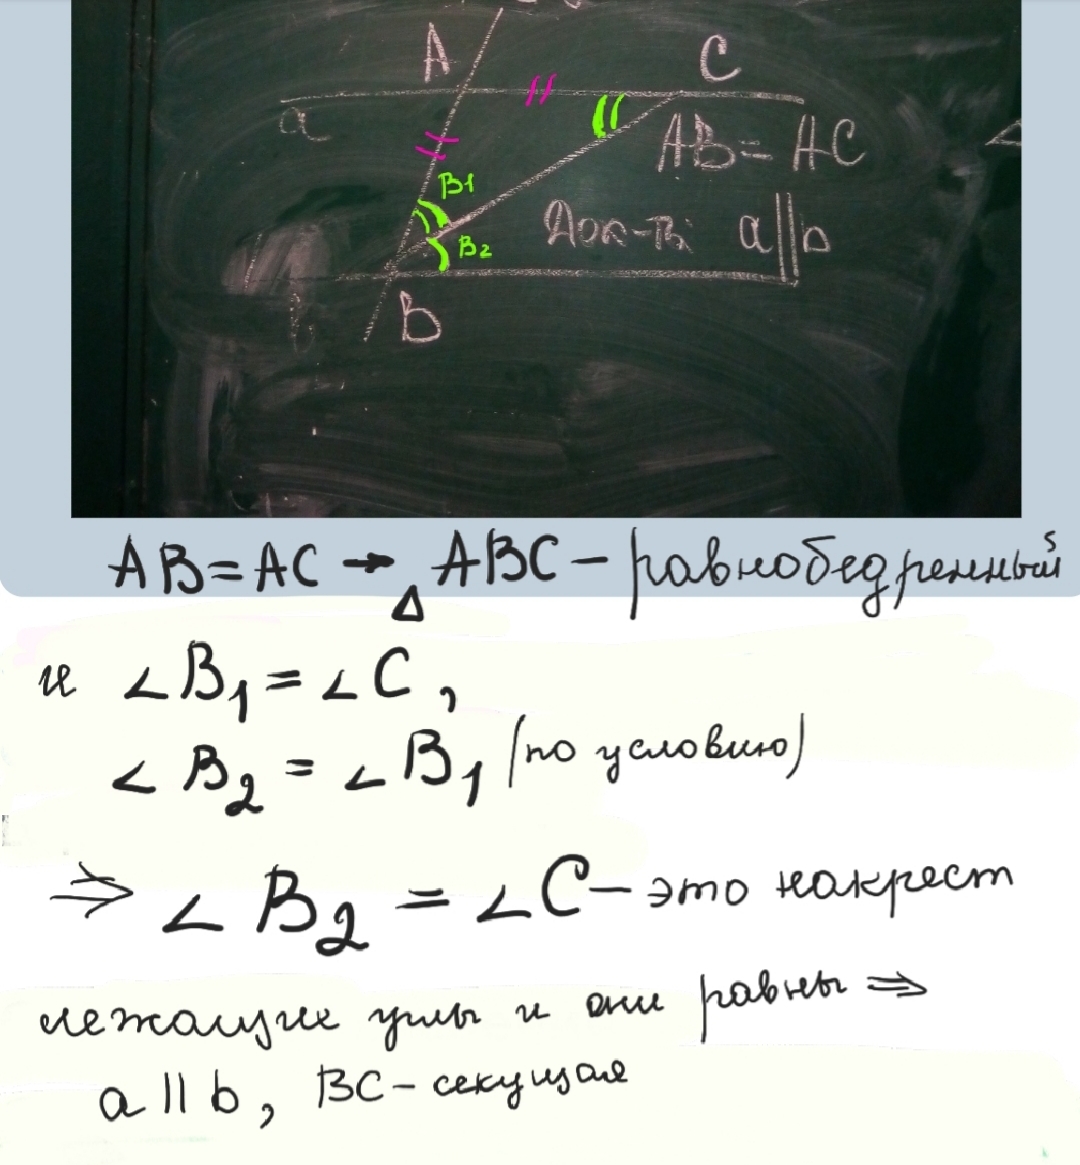 A C
a
AB = AC
B1
Док-ть a||b
B2
b B
AB = AC → △ ABC – равнобедренный
и ∠B1 = ∠C,
∠B2 = ∠B1 (по условию)
⇒ ∠B2 = ∠C – это накрест
лежащие углы и они равны ⇒
a || b, BC – секущая